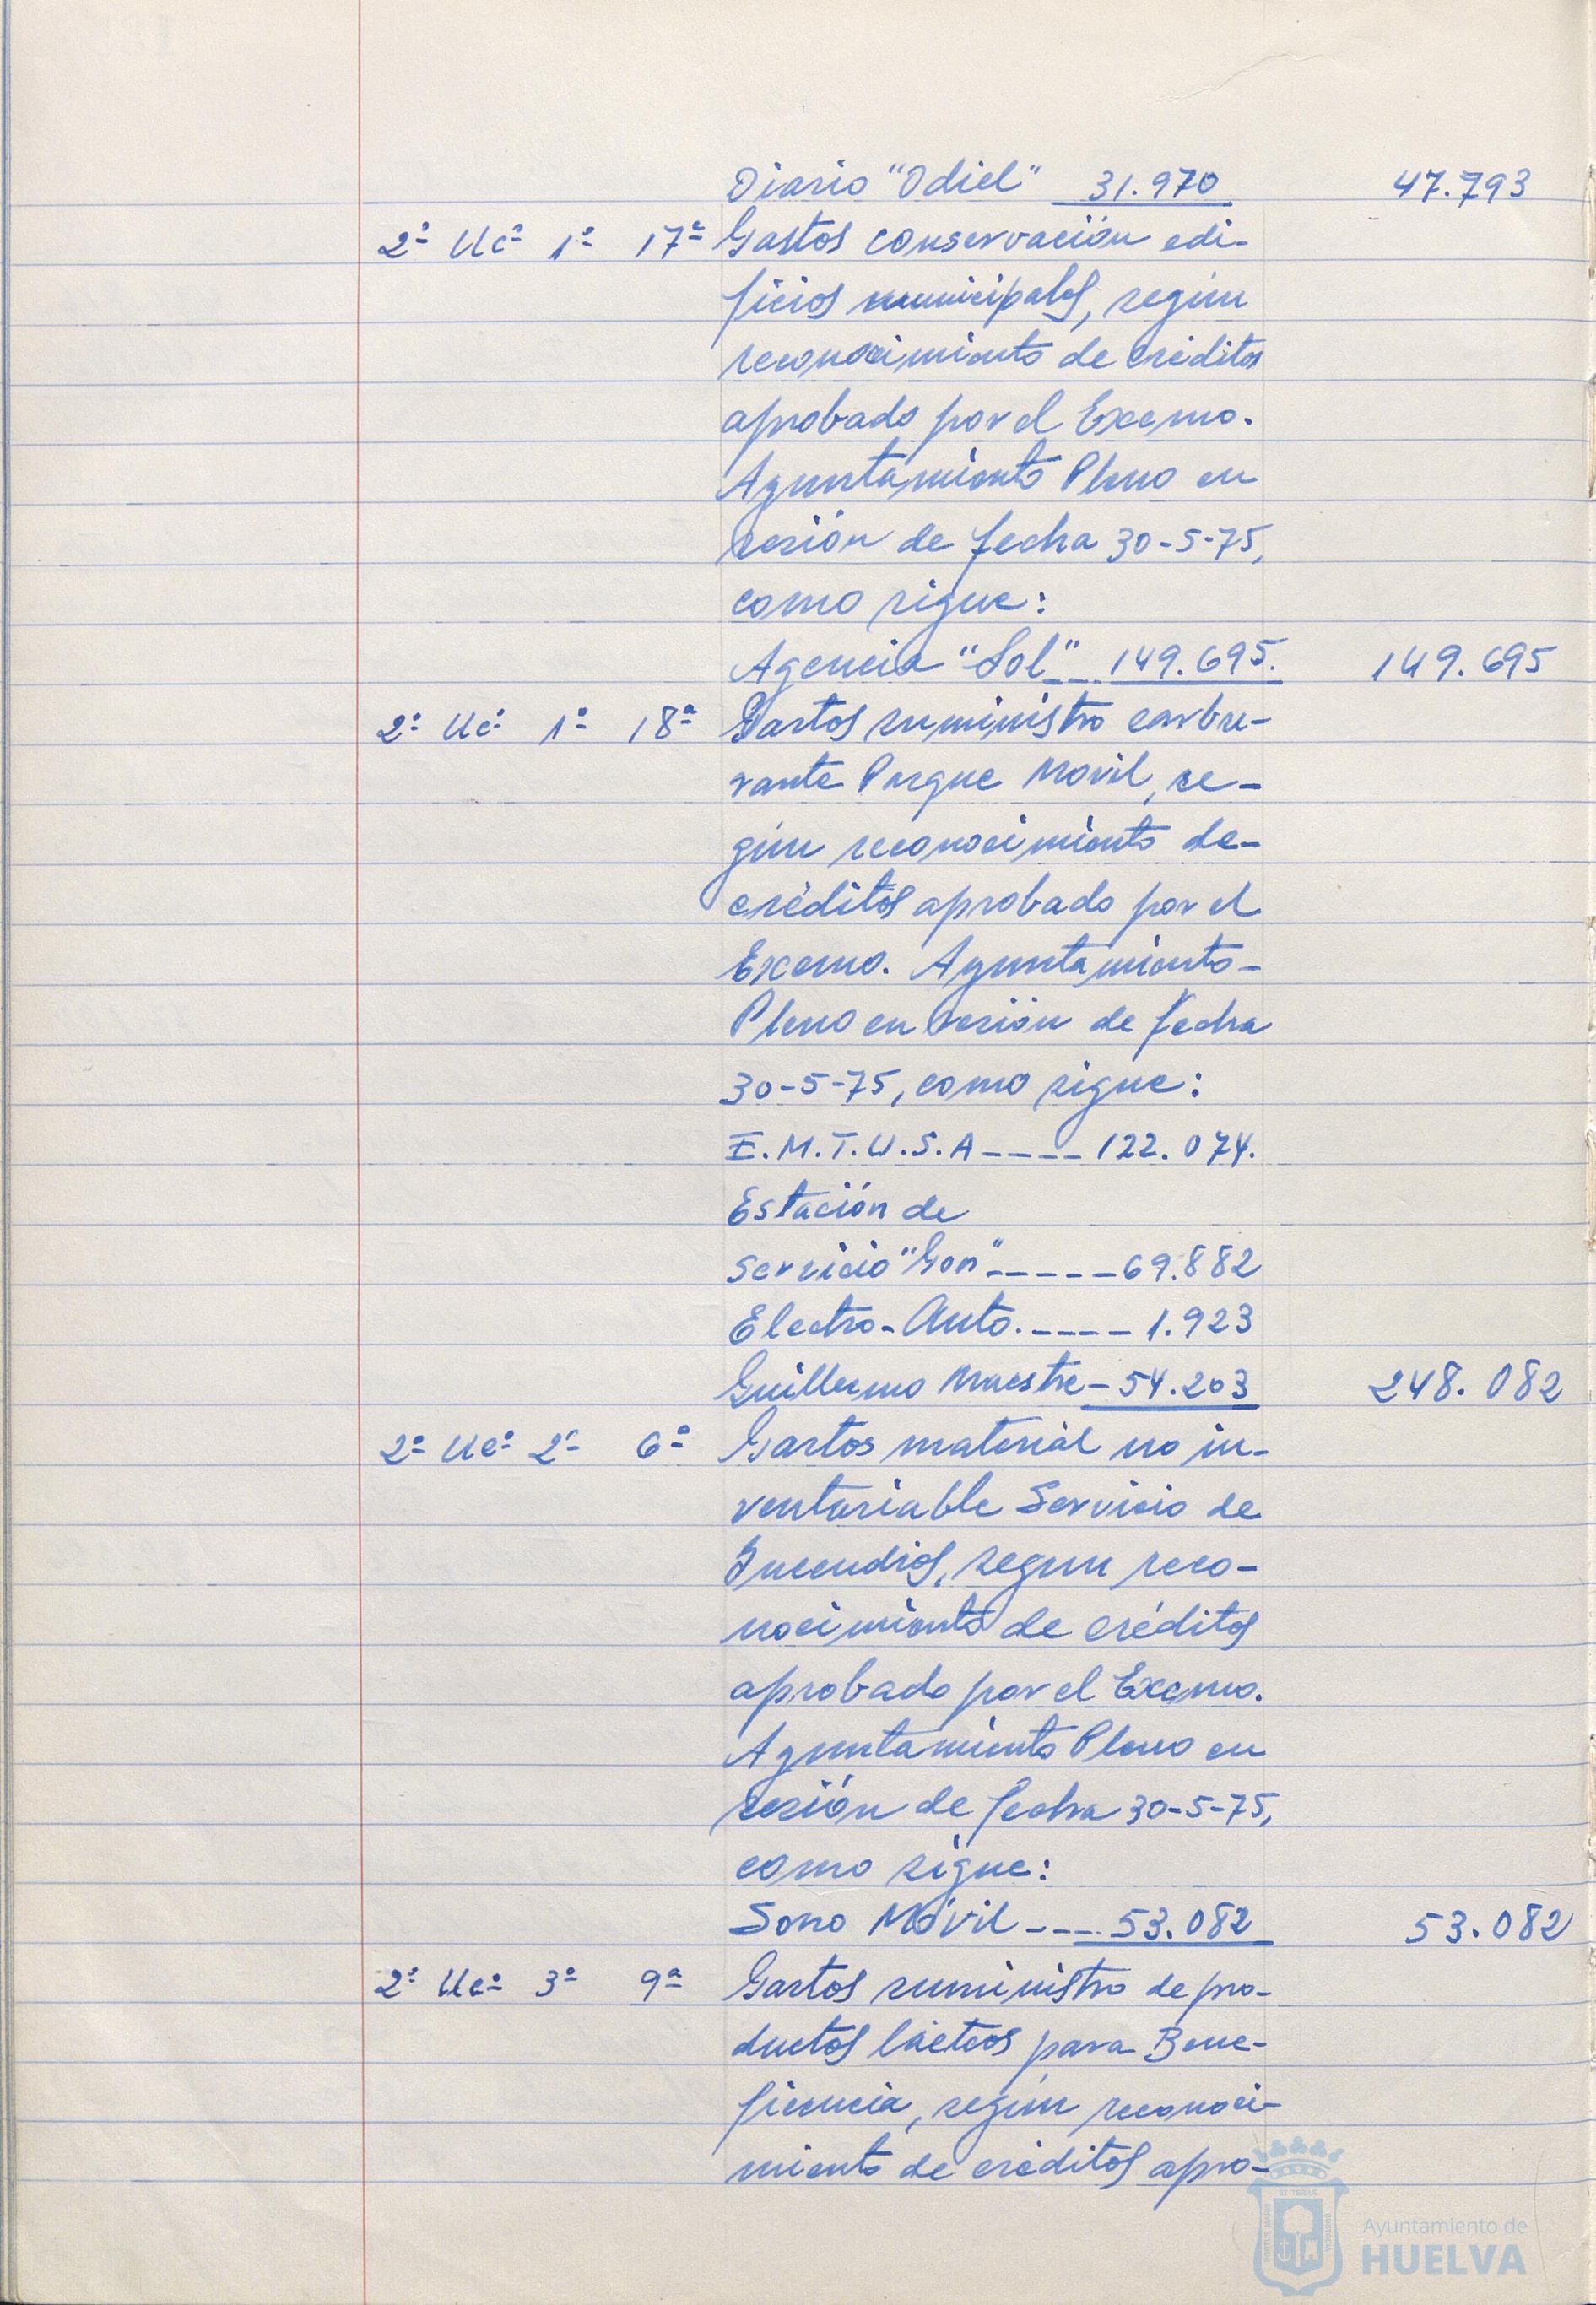 Diario "Odiel" 31.970 47.793
2º Uc: 1º 17ª Gastos conservación edi-
ficios municipales, según
reconocimiento de créditos
aprobado por el Excmo.
Ayuntamiento Pleno en
sesión de fecha 30-5-75,
como sigue:
Agencia "Sol" 149.695. 149.695
2º Uc: 1º 18ª Gastos suministro carbu-
rante Parque Movil, se-
gún reconocimiento de-
créditos aprobado por el
Excmo. Ayuntamiento-
Pleno en sesión de fecha
30-5-75, como sigue:
E.M.T.U.S.A---- 122.074.
Estación de
Servicio "Gon"-----69.882
Electro-Auto.---- 1.923
Guillermo Maestre-54.203 248.082
2º Uc: 2º 6ª Gastos material no in-
ventariable Servicio de
Incendios, segun reco-
nocimiento de créditos
aprobado por el Excmo.
Ayuntamiento Pleno en
sesión de fecha 30-5-75,
como sigue:
Sono Móvil ---- 53.082 53.082
2º Uc: 3º 9ª Gastos suministro de pro-
ductos lácteos para Bene-
ficencia, según reconoci-
miento de créditos apro-
Ayuntamiento de
HUELVA